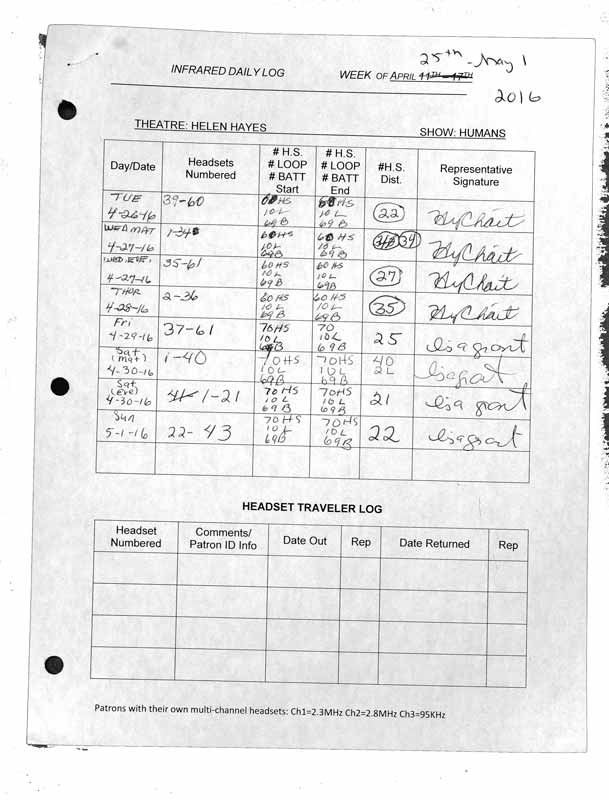 25th - May 1
INFRARED DAILY LOG WEEK OF APRIL 11TH - 17TH
2016
THEATRE: HELEN HAYES SHOW: HUMANS
Day/Date Headsets Numbered # H.S. # LOOP # BATT Start # H.S. # LOOP # BATT End #H.S. Dist. Representative Signature
TUE 4-26-16 39-60 60HS 10L 69B 60HS 10L 69B 22
WED MAT 4-27-16 1-34 60HS 10L 69B 60HS 10L 69B 34
WED. EVE. 4-27-16 35-61 60HS 10L 69B 60HS 10L 69B 27
THUR 4-28-16 2-36 60HS 10L 69B 60HS 10L 69B 35
Fri 4-29-16 37-61 70HS 10L 69B 70 10L 69B 25 lisa grant
Sat (Mat) 4-30-16 1-40 70HS 10L 69B 70HS 10L 69B 40 2L
Sat (Eve) 4-30-16 41- 1-21 70HS 10L 69B 70HS 10L 69B 21 lisa grant
Sun 5-1-16 22-43 70HS 10L 69B 70HS 10L 69B 22 lisa grant
HEADSET TRAVELER LOG
Headset Numbered Comments/ Patron ID Info Date Out Rep Date Returned Rep
Patrons with their own multi-channel headsets: Ch1=2.3MHz Ch2=2.8MHz Ch3=95KHz